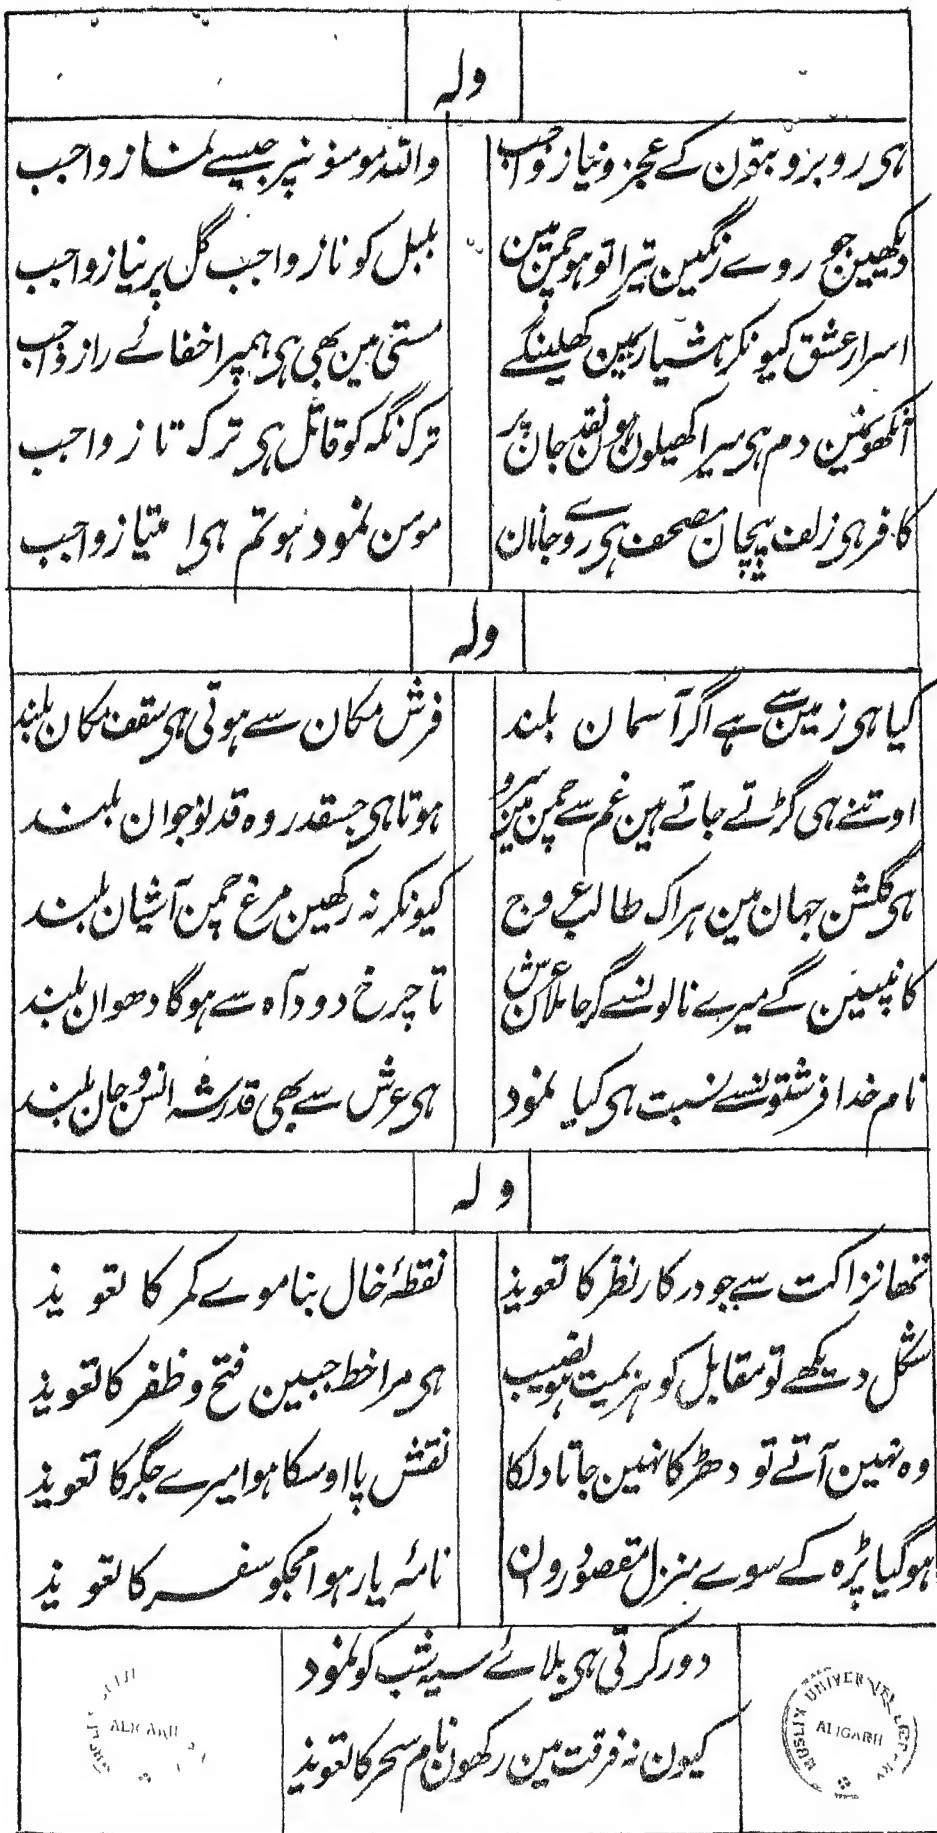 ولہ
ہی روبرو بتون کے عجز و نیاز واجب والله مومنونپر جیسے نماز واجب
دیکھین جو روے رنگین تیرا تو ہو چمن مین بلبل کو ناز واجب گل پر نیاز واجب
اسرار عشق کیونکر ہشیار ہمین کھلینگے مستی مین بھی ہی ہمپر اخفائے راز واجب
آنکھونمین دم ہی میرا کھیلون ہون نقد جان پر ترک نگہ کو قاتل ہی ترک تاز واجب
کافر ہی زلف پیچان مصحف ہی روے جانان مومن نمود ہو تم ہی امتیاز واجب
ولہ
کیا ہی زمین سے ہے اگر آسمان بلند فرش مکان سے ہوتی ہی سقف مکان بلند
اوتنے ہی گڑتے جاتے ہین غم سے چمن مین سرو ہوتا ہی جسقدر وہ قد نوجوان بلند
ہی گلشن جہان مین ہر اک طالب عروج کیونکر نہ رکھین مرغ چمن آشیان بلند
کانپین گے میرے نالونسے گر حاملان عرش تا چرخ دود آہ سے ہوگا دھوان بلند
نام خدا فرشتونسے نسبت ہی کیا نمود ہی عرش سے بھی قدر شہ انس و جان بلند
ولہ
تھا نزاکت سے جو درکار نظر کا تعویذ نقطۂ خال بنا موے کمر کا تعویذ
شکل دیکھے تو مقابل کو ہزیمت ہو نصیب ہی مرا خط جبین فتح و ظفر کا تعویذ
وہ نہین آتے تو دھڑکا نہین جاتا دلکا نقش پا اوسکا ہوا میرے جگر کا تعویذ
ہوگیا پڑہ کے سوے منزل مقصود روان نامۂ یار ہوا مجکو سفر کا تعویذ
دور کرتی ہی بلائے سیہ شب کو نمود
کیون نہ فرقت مین رکھون نام سحر کا تعویذ
MUSLIM UNIVERSITY LIBRARY
ALIGARH
ALIGARH